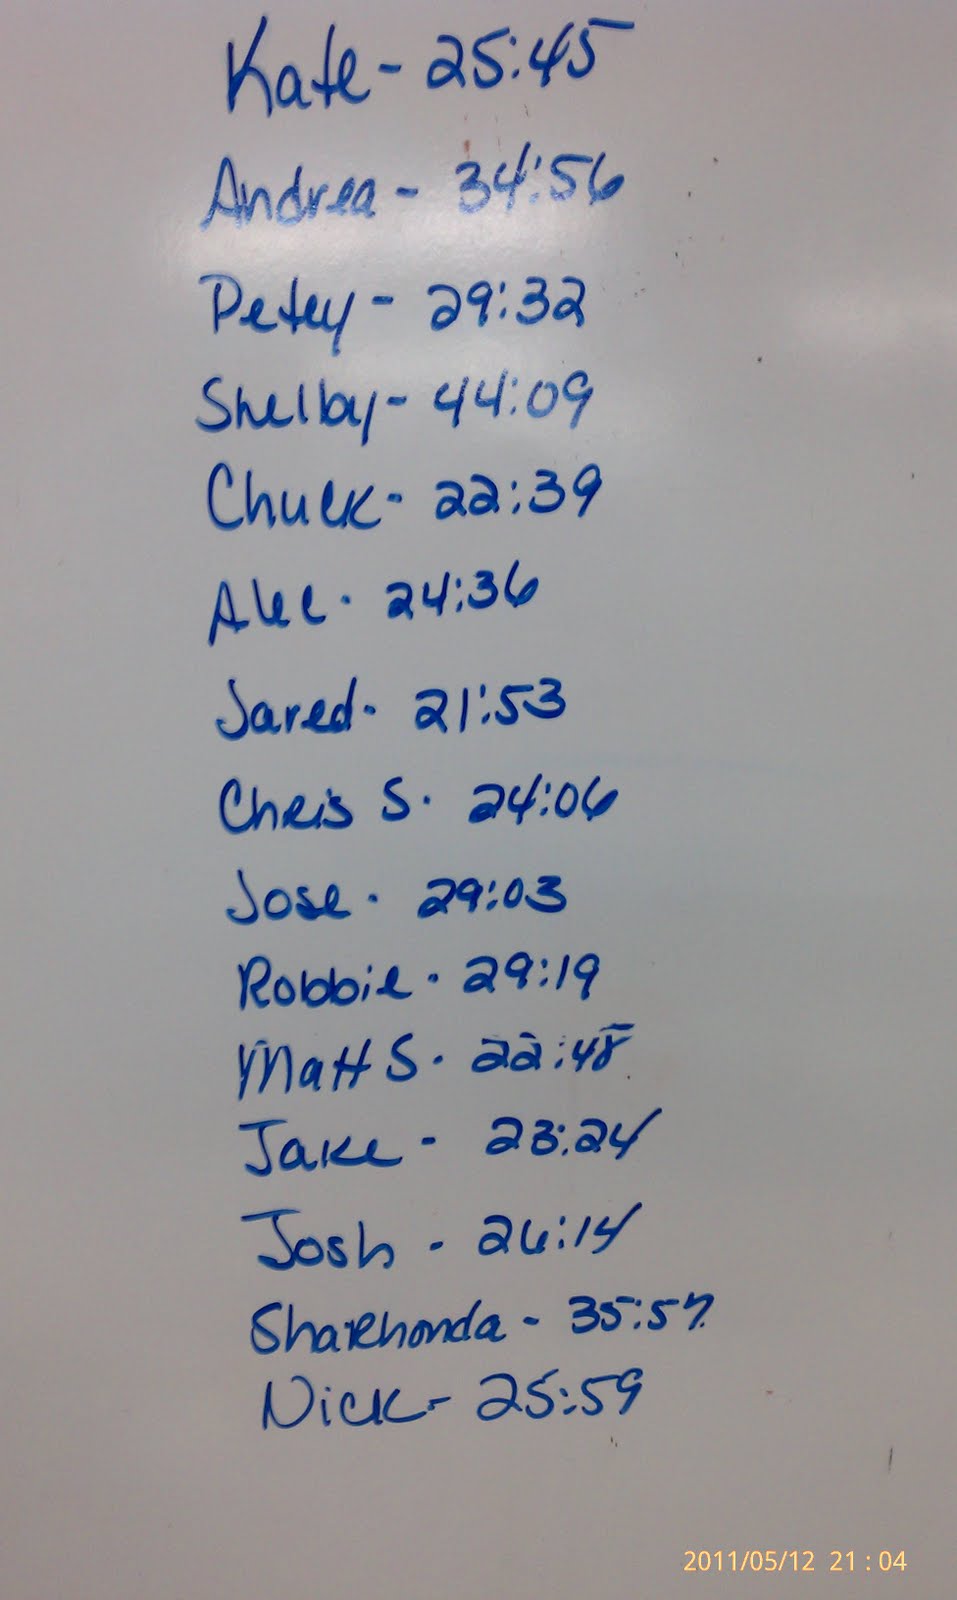 Kate - 25:45
Andrea - 34:56
Petey - 29:32
Shelby - 44:09
Chuck - 22:39
Alec - 24:36
Jared - 21:53
Chris S. 24:06
Jose - 29:03
Robbie - 29:19
Matt S. 22:48
Jake - 23:24
Josh - 26:14
Sharhonda - 35:57
Nick - 25:59
2011/05/12 21:04